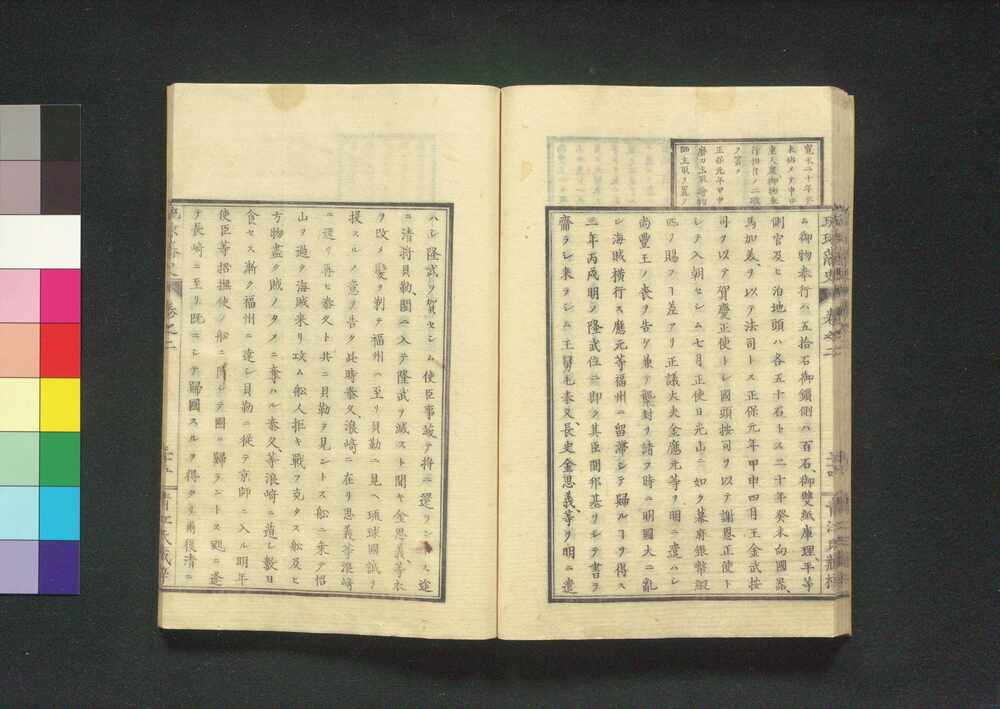 寛永二十年
ヲ置ク
正保元年甲申
琉球藩史 巻之二
ム御物奉行ハ五拾石御鎖側ハ百石、御雙紙庫理、平等
側官及ヒ泊地頭ハ各五十石トス二十年癸未向國器、
馬加美、ヲ以テ法司トス正保元年甲申四月王金武按
司ヲ以テ賀慶正使トシ國頭按司ヲ以テ謝恩正使ト
シテ入朝セシム七月正使日光山ニ如ク幕府銀幣緞
匹ノ賜フヿ差アリ正議大夫金應元等ヲ明ニ遣ハシ
尚豊王ノ喪ヲ告ケ兼テ襲封ヲ請フ時ニ明國大ニ亂
レ海賊横行ス應元等福州ニ留滞シテ歸ルヿヲ得ス
三年丙戌明ノ隆武位ニ即ク其臣閩邦基ヲシテ書ヲ
齎ラシ來ラシム王舅毛泰久、長史金思義、等ヲ明ニ遣
ハシ隆武ヲ賀セシム使臣事竣テ將ニ還ラントス途
ニ清將貝勒、閩ニ入テ隆武ヲ滅スト聞キ金思義、等衣
ヲ改メ髪ヲ剃テ福州ニ至リ貝勒ニ見ヘ琉球國誠ヲ
投スルノ意ヲ告ク此時泰久、浪﨑ニ在リ思義等浪﨑
ニ還リ再ヒ泰久ト共ニ貝勒ヲ見ントス船ニ乗テ怡
山ヲ過ク海賊来リ攻ム船人拒キ戰フ克タス船及ヒ
方物盡ク賊ノタメニ奪ハル泰久、等浪﨑ニ遁レ數日
食セス漸ク福州ニ達シ貝勒ニ從テ京師ニ入ル明年
使臣等招撫使ノ船ニ陪シテ國ニ歸ラントス颶ニ逢
テ長崎ニ至リ既ニシテ歸國スルヲ得タリ爾後清ニ
琉球藩史 巻之二